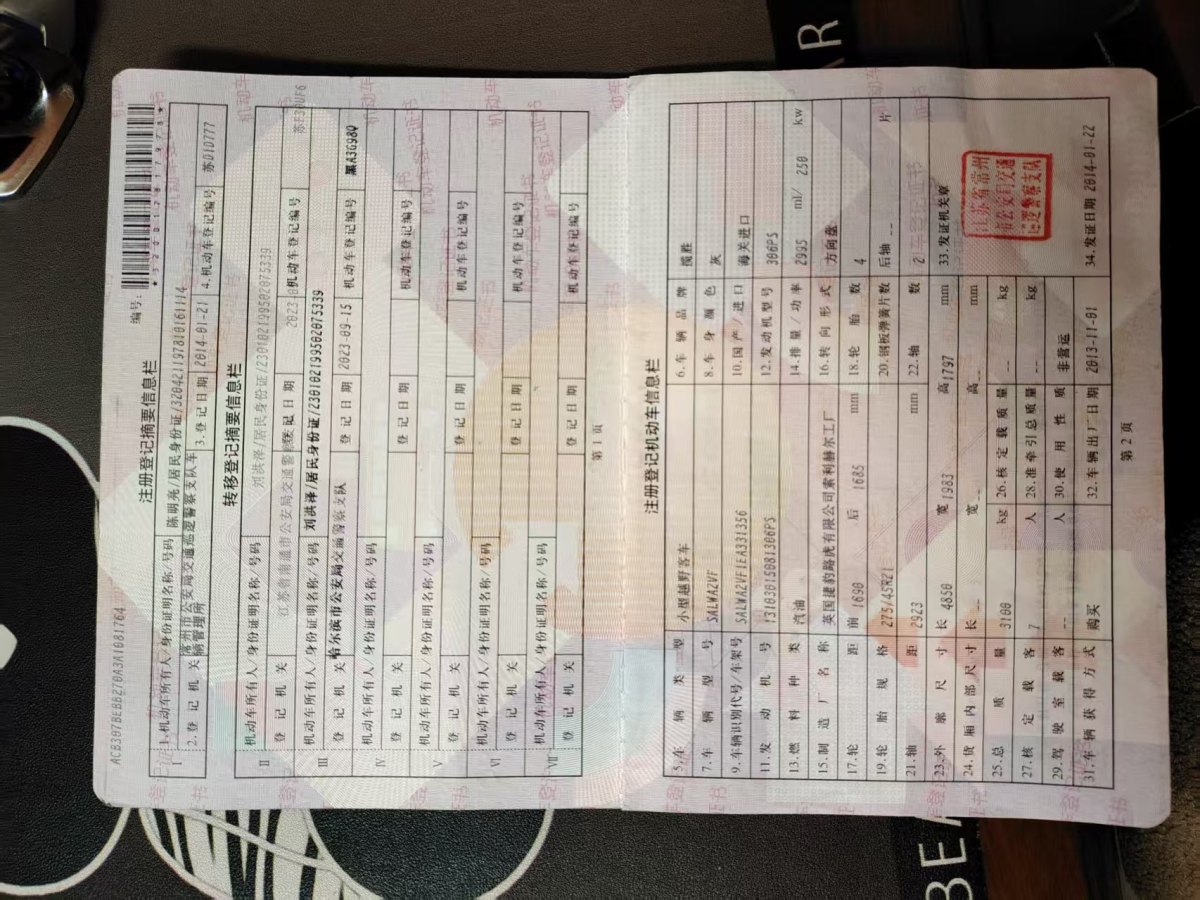 ACB307BEBB270A3A1081764
编号:
注册登记摘要信息栏
I 1.机动车所有人/身份证明名称/号码 陈明亮/居民身份证/320421197810161114
2.登记机关 常州市公安局交通巡逻警察支队车辆管理所 3.登记日期 2014-01-21 4.机动车登记编号 苏D1D777
转移登记摘要信息栏
II 机动车所有人/身份证明名称/号码 刘洪泽/居民身份证/230102199502075339
登记机关 江苏省南通市公安局交通警察 登记日期 2023 机动车登记编号
III 机动车所有人/身份证明名称/号码 刘洪泽/居民身份证/230102199502075339
登记机关 哈尔滨市公安局交通警察支队 登记日期 2023-09-15 机动车登记编号 黑A3G98Q
IV 机动车所有人/身份证明名称/号码
登记机关 登记日期 机动车登记编号
V 机动车所有人/身份证明名称/号码
登记机关 登记日期 机动车登记编号
VI 机动车所有人/身份证明名称/号码
登记机关 登记日期 机动车登记编号
VII 机动车所有人/身份证明名称/号码
登记机关 登记日期 机动车登记编号
第 1 页
注册登记机动车信息栏
5.车辆类型 小型越野客车 6.车辆品牌 揽胜
7.车辆型号 SALWA2VF 8.车身颜色 灰
9.车辆识别代号/车架号 SALWA2VF1EA331356 10.国产/进口 海关进口
11.发动机号 13103015081306PS 12.发动机型号 306PS
13.燃料种类 汽油 14.排量/功率 2995 ml/ 250 kw
15.制造厂名称 英国捷豹路虎有限公司索利赫尔工厂 16.转向形式 方向盘
17.轮距 前 1690 后 1685 mm 18.轮胎数 4
19.轮胎规格 275/45R21 20.钢板弹簧片数 后轴 -- 片
21.轴距 2923 mm 22.轴数 2
23.外廓尺寸 长 4850 宽 1983 高 1797 mm 33.发证机关章
24.货厢内部尺寸 长 -- 宽 -- 高 -- mm
25.总质量 3100 kg 26.核定载质量 -- kg
27.核定载客 7 人 28.准牵引总质量 -- kg
29.驾驶室载客 -- 人 30.使用性质 非营运
31.车辆获得方式 购买 32.车辆出厂日期 2013-11-01 34.发证日期 2014-01-22
江苏省常州
市公安局交通
巡逻警察支队
第 2 页
BEA
BEAR